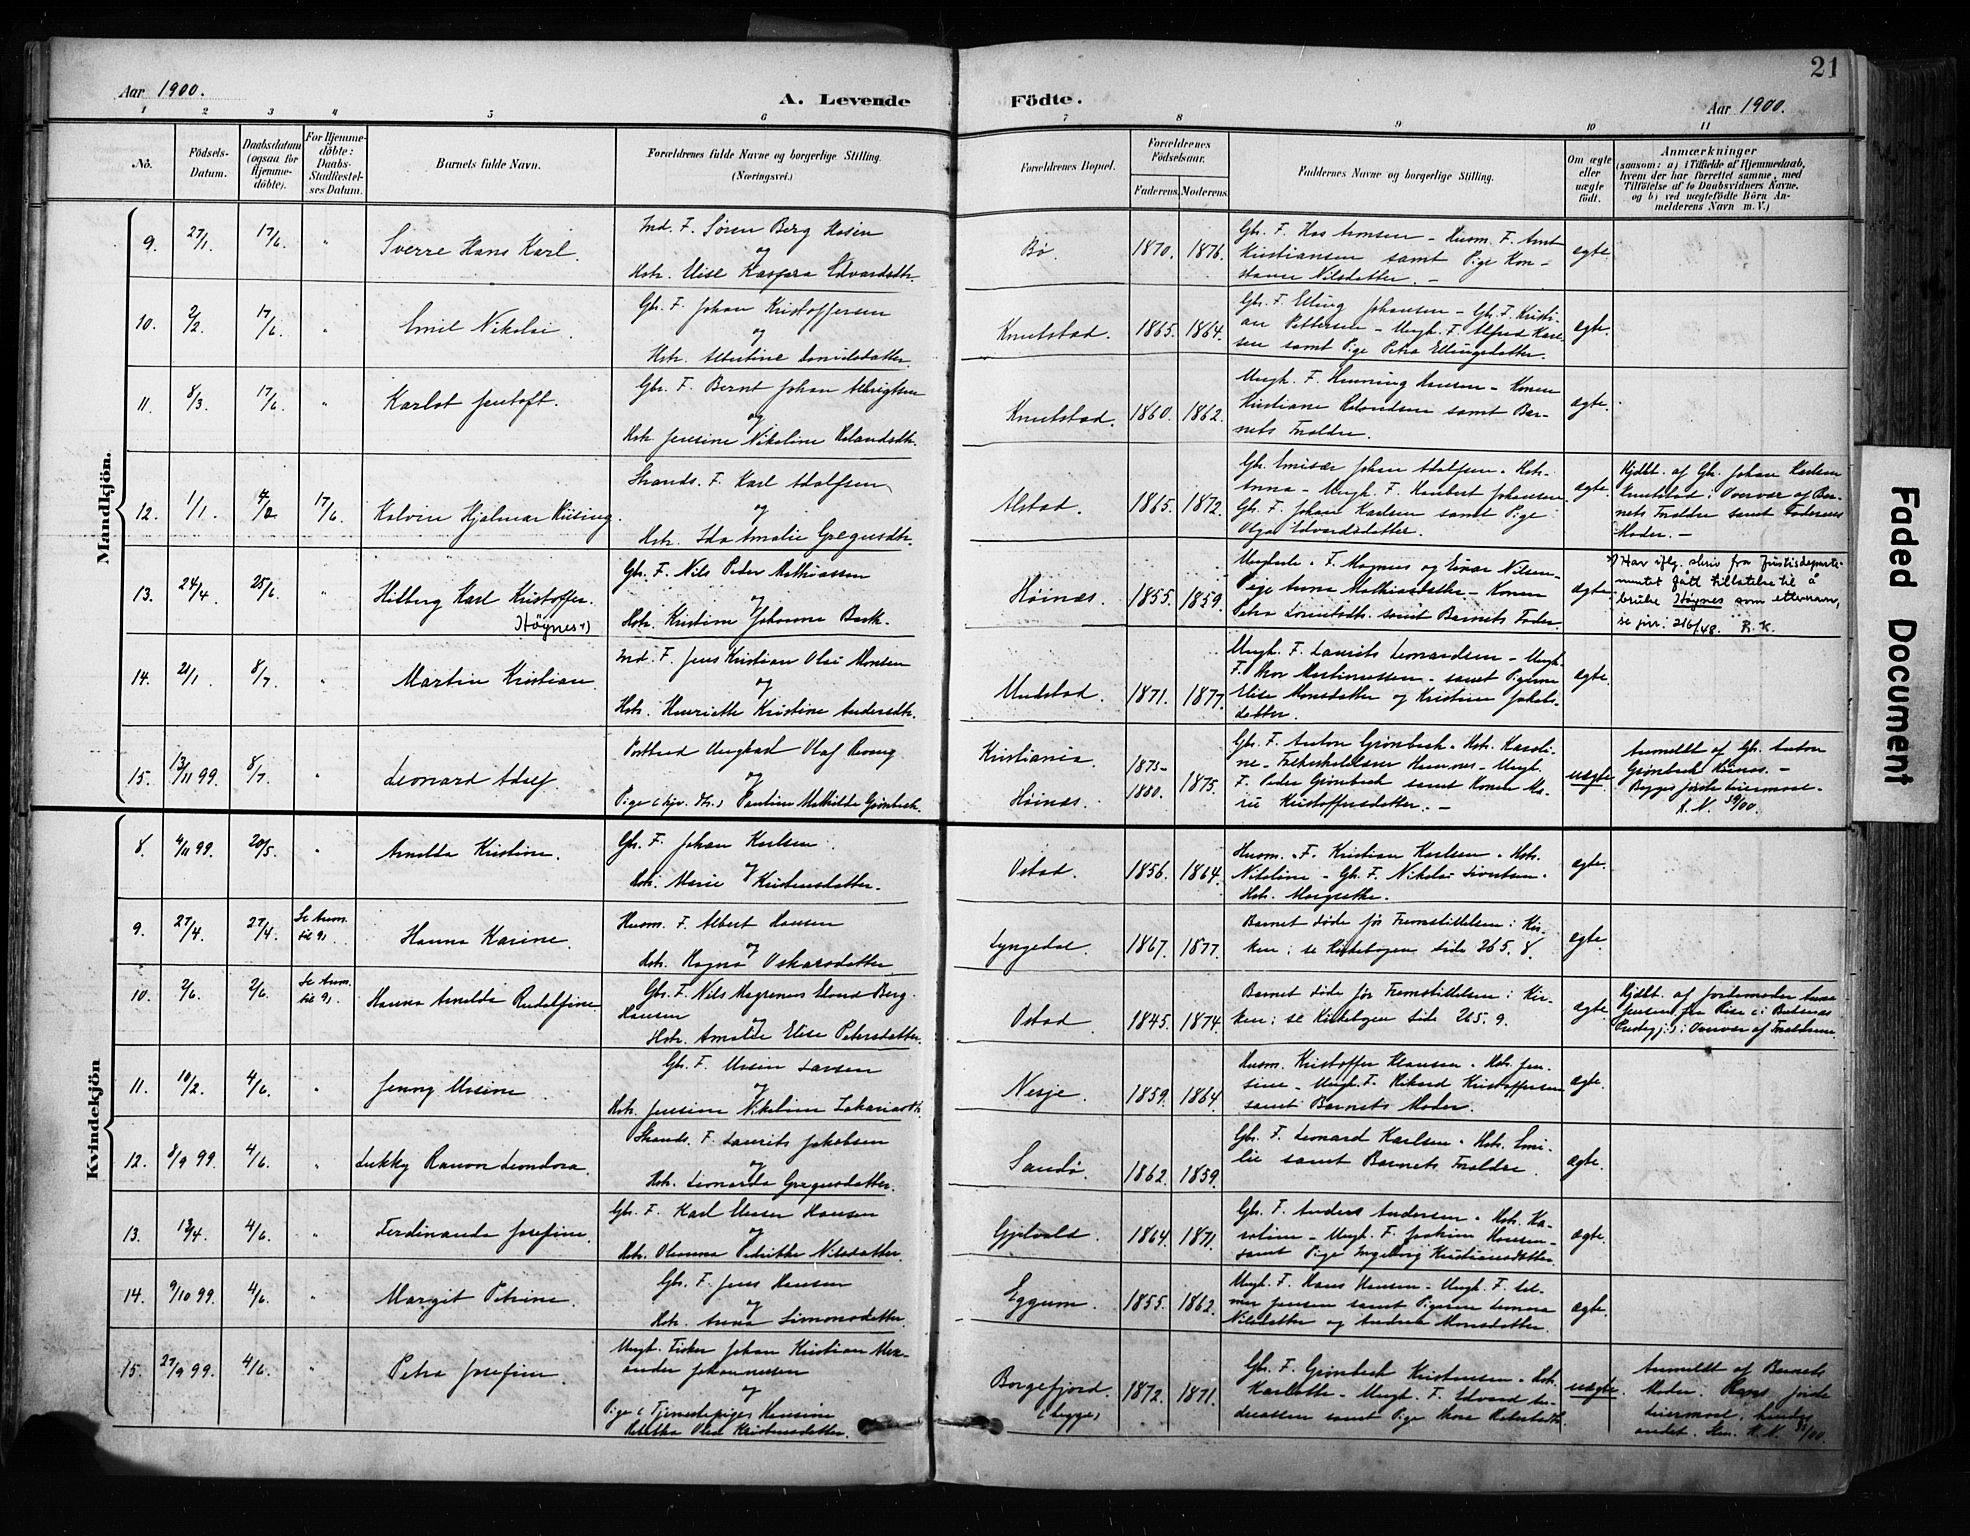 21
Aar 1900.
A. Levende
Födte.
Aar 1900.
1 2 3 4 5 6 7 8 9 10 11
Nô.
Födsels-
Datum.
Daabsdatum
(ogsaa for
Hjemme-
döbte).
For Hjemme-
döbte:
Daabs-
Stadfæstel-
ses Datum.
Barnets fulde Navn.
Forældrenes fulde Navne og borgerlige Stilling.
(Næringsvei.)
Forældrenes Bopæl.
Forældrenes
Födselsaar.
Faderens. Moderens.
Faddernes Navne og borgerlige Stilling.
Om ægte
eller
uægte
födt.
Anmærkninger
(saasom: a) i Tilfælde af Hjemmedaab,
hvem der har forrettet samme, med
Tilföielse af to Daabsvidners Navne.
og b) ved uægtefödte Börn An-
melderens Navn m. V.)
Mandkjön.
9. 27/1. 17/6. " Sverre Hans Karl.
Ind. F. Søren Berg Hosen
og
Hstr. Elise Kaspara Edvardsdtr.
Bø. 1870. 1876.
Gbr. F. Hans Aronsen – Husm. F. Arnt
Kristiansen samt Pige Kon-
stanse Nilsdatter. –
ægte.
10. 2/2. 17/6. " Emil Nikolai.
Gbr. F. Johan Kristoffersen
og
Hstr. Albertine Danielsdatter
Knutstad. 1865. 1864.
Gbr. F. Elling Johansen – Gbr. F. Kristi-
an Pettersen – Ungk. F. Alfred Karl-
sen samt Pige Petra Ellingsdatter.
ægte.
11. 8/3. 17/6. " Karlot Jentoft.
Gbr. F. Bernt Johan Albrigtsen
og
Hstr. Jensine Nikoline Rolandsdtr.
Knutstad. 1860. 1862.
Ungk. F. Henning Hansen – Konen
Kristiane Rolandsen samt Bar-
nets Forældre.
ægte.
12. 1/1. 17/6. Kalvin Hjalmar
Strands. F. Karl Adolfsen
og
Hstr. Ida Amalie Gregusdtr.
Alstad. 1865. 1872.
Gbr. Johan Adolfsen. Hstr.
Anna – Ungk. F. Johansen
Gbr. F. Johan Karlsen samt Pige
Olga Edvardsdatter.
ægte.
Hjdbt. af Gbr. Johan Karlsen
Knutstad i Overvær af Bar-
nets Forældre samt Faderens
Moder. –
13. 24/4. 25/6. " Hilberg Karl Kristoffer.
Høgnes *)
Gbr. F. Nils Peder Mathiassen
og
Hstr. Kristine Johanna Bæk.
Høinæs. 1855. 1859.
F. Magnus og Einar Nilsen –
Pige Anna Mathiasdatter – Konen
Petra samt Barnets Fader.
ægte.
*) Har iflg. skriv fra Justisdeparte-
mentet fått tillatelse til å
bruke Høgnes som etternavn,
se jnr. 216/48. R. K.
14. 21/1. 8/7. " Martin Kristian.
Ind. F. Jens Kristian Olai Monsen
og
Hstr. Henriette Kristine Andersdtr.
Unstad. 1871. 1877.
Ungk. F. Laurits Leonardsen – Ungk.
F. Martinussen – samt Pigerne
Elise Monsdatter og Kristine Jakobs-
datter.
ægte.
15. 13/11 99. 8/7. " Leonard Adolf.
Postbud Ungkarl Olaf
og
Pige Pauline Mathilde Grønbæch.
Kristiania. 1875–
1880. 1875.
Høinæs.
Gbr. F. Anton Grønbech. Hstr. Karoli-
ne – Ungk.
F. Peder Grønbech samt Konen Ma-
rie Kristoffersdatter. –
uægte.
Anmeldt af Gbr. Anton
Grønbech Høinæs. –
Begges første Leiermaal –
K. N. 39/00.
Kvindekjön
8. 4/11 99. 20/5. " Arnilda Kristine.
Gbr. F. Johan Karlsen
og
Hstr. Marie Kristensdatter.
Ostad. 1856. 1864.
Husm. F. Kristian Karlsen. Hstr.
Nikoline – Gbr. F. Nikolai Sivertsen.
Hstr. Margrethe.
ægte.
9. 27/4. 27/4. Se Anm.
til 9. Hanna Karine.
Husm. F. Albert Hansen
og
Hstr. Magna Oskarsdatter.
Lyngedal. 1867. 1877.
Barnet døde før Fremstillelsen i Kir-
ken; se Kirkebogen Side 265. 8.
ægte.
10. 2/6. 2/6. Se Anm.
til 9. Hanna Arnilda Rudolfine
Gbr. F. Nils Magrenus Lund Berg
Hansen
og
Hstr. Amalie Elise Petersdatter.
Ostad. 1845. 1874.
Barnet døde før Fremstillelsen i Kir-
ken; se Kirkebogen Side 265. 9.
ægte.
Hjdbt. af Jordemoder Anna
Jensen fra Rise i Buksnæs
Præstegj. i Overvær af Forældrene
11. 10/2. 4/6. " Jenny Ursine.
Gbr. F. Ursin Larsen
og
Hstr. Jensine Nikoline Zakariasdtr.
Nesje. 1859. 1864.
Husm. Kristoffer Hansen. Hstr. Jen-
sine – Ungk. F. Rikard Kristoffersen
samt Barnets Moder.
ægte.
12. 8/9 99. 4/6. " Lukky Ranoa Leondora.
Strands. F. Laurits Jakobsen
og
Hstr. Leonarda Gregusdatter.
Sandø. 1862. 1859.
Gbr. F. Leonard Karlsen. Hstr. Emi-
lie samt Barnets Forældre.
ægte.
13. 13/4. 4/6. " Ferdinanda Josefine.
Gbr. F. Karl Unser Hansen
og
Hstr. Oleanna Pedrikke Nilsdatter.
Gjelvold. 1864. 1871.
Gbr. F. Anders Andersen. Hstr. Ka-
roline – Ungk. F. Joakim Hansen –
samt Pige Ingeborg Kristiansdatter.
ægte.
14. 9/10 99. 4/6. " Margit Petrine.
Gbr. F. Jens Hansen
og
Hstr. Anna Simonsdatter.
Eggum. 1855. 1862.
Ungk. F. Hans Hansen – Ungk. F. Hil-
mer Jensen samt Pigerne Lorna
Nilsdatter og Andrea Monsdatter.
ægte.
15. 27/9 99. 4/6. " Petra Josefine.
Ungk. Fisker Johan Kristian Alex-
ander Johannessen
og
Pige (Tjenestepige) Hansine
Rebekka Olea Kristensdatter.
Borgefjord.
(begge) 1872. 1871.
Gbr. F. Grønbech Kristensen. Hstr.
Karlotte – Ungk. F. Edvard An-
dreassen samt Pige
uægte.
Anmeldt af Barnets
Moder. Hans første
Leiermaal; hendes
andet. K. N. /00.
Faded Document